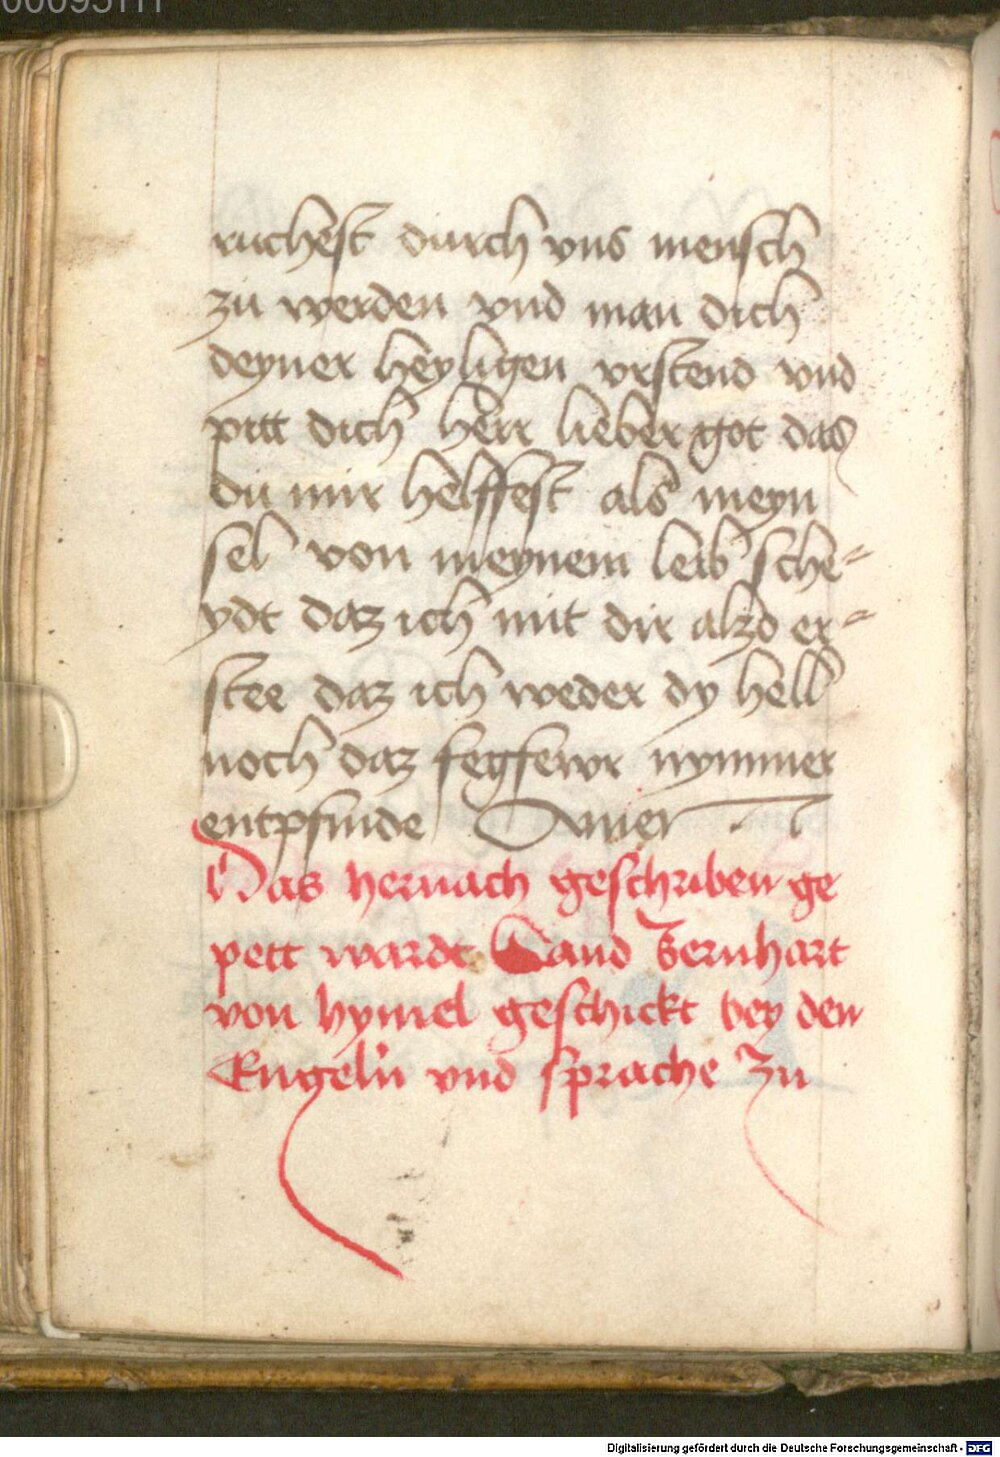 ruchest durch vns mensch
zu werden vnd man dich
deyner heyligen vrstend vnd
pitt dich herr lieber got das
du mir helffest als meyn
sel von meynem leib sche-
ydt daz ich mit dir alzo er-
stee daz ich weder dy hell
noch daz fegfewr nymmer
entpfinde Amen
Das hernach geschriben ge
pett wardt Sand Bernhart
von hymel geschickt bey den
Engeln vnd sprache zu
Digitalisierung gefördert durch die Deutsche Forschungsgemeinschaft - DFG